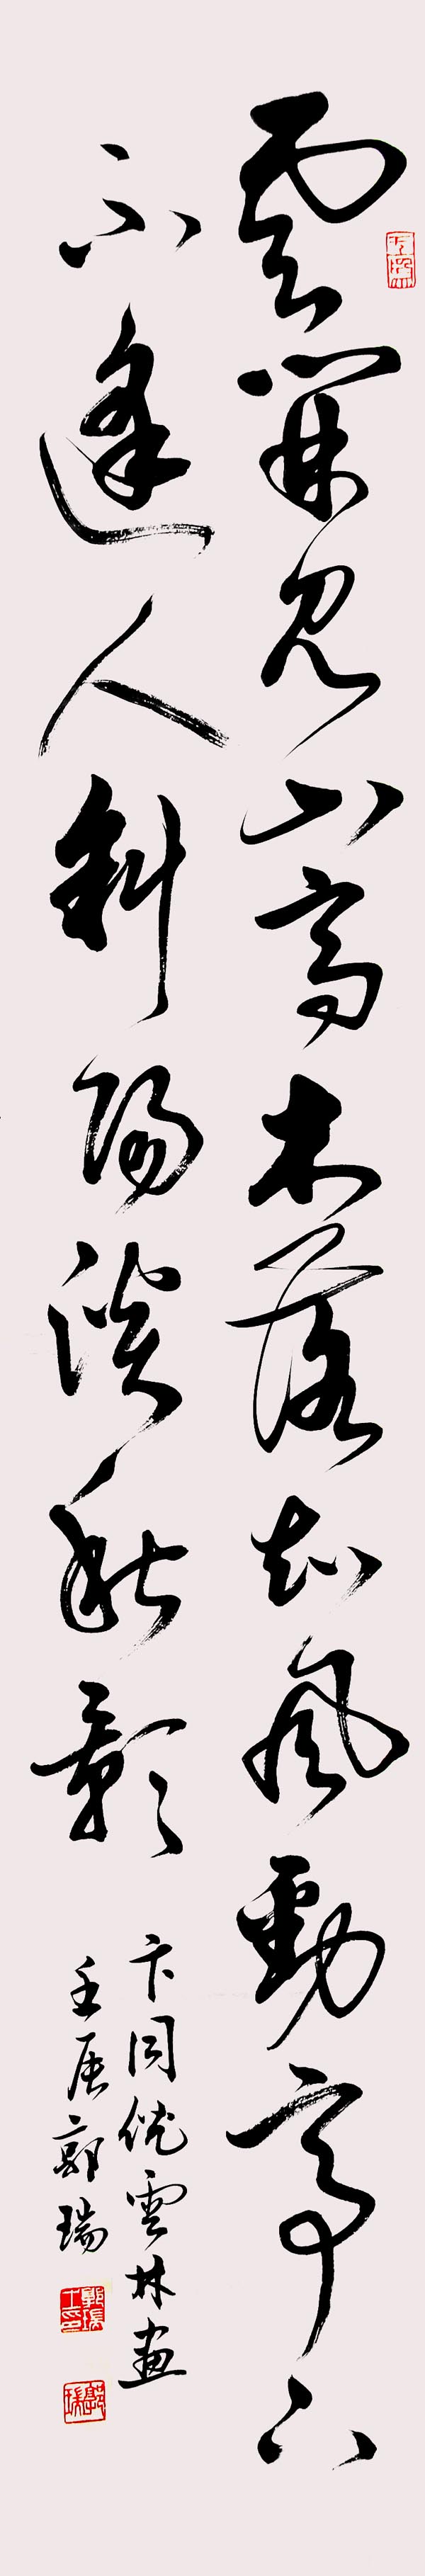 雲開見山高木落知風勁亭下
不逢人斜陽淡秋影
卞同倪雲林畫
壬辰郭瑞